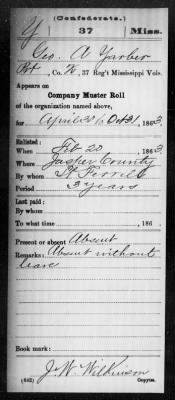 (Confederate.)
Y 37 Miss.
Geo. A Yarber
Pvt, Co. H, 37 Reg't Mississippi Vols.
Appears on
Company Muster Roll
of the organization named above,
for April 28 to Oct 31, 1863.
Enlisted:
When Feb 20, 1863
Where Jasper County
By whom Lt Ferrill
Period 3 years
Last paid:
By whom
To what time , 186 .
Present or absent Absent
Remarks: Absent without
leave
Book mark:
J. W. Wilkinson
(642) Copyist.